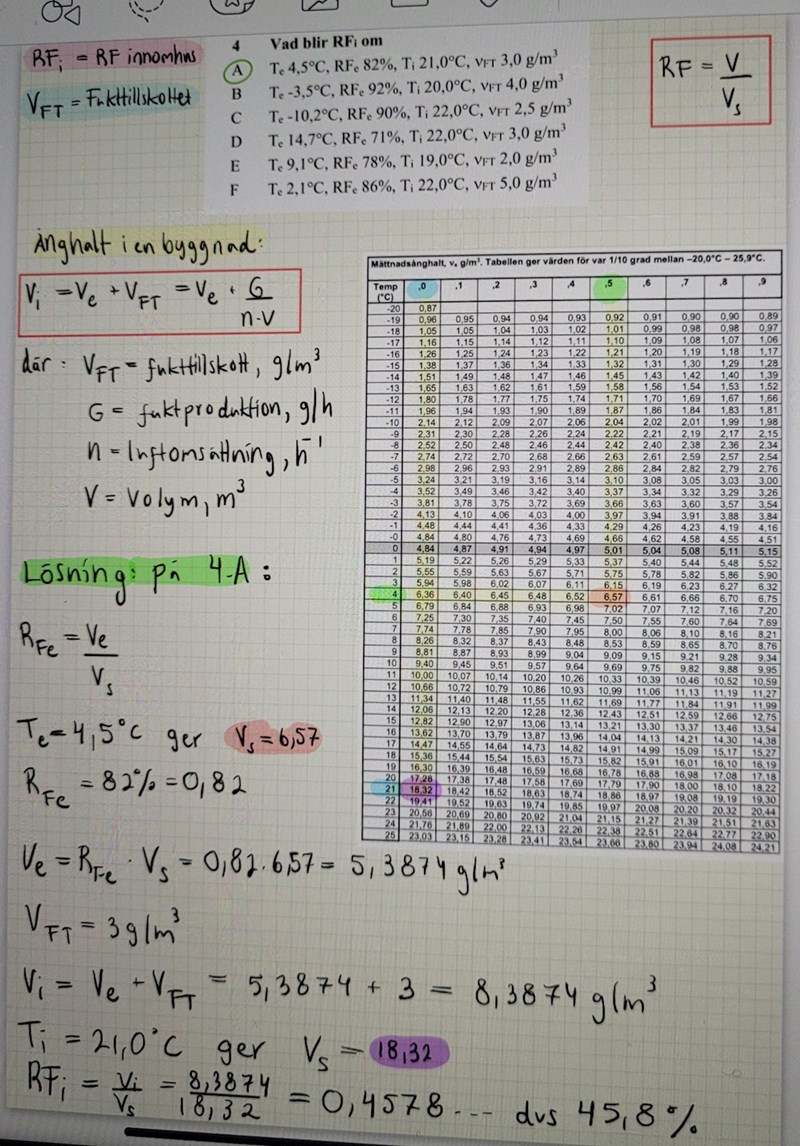 RFi = RF innomhus
VFT = Fukttillskottet
4 Vad blir RFi om
A Te 4,5°C, RFe 82%, Ti 21,0°C, vFT 3,0 g/m³
B Te -3,5°C, RFe 92%, Ti 20,0°C, vFT 4,0 g/m³
C Te -10,2°C, RFe 90%, Ti 22,0°C, vFT 2,5 g/m³
D Te 14,7°C, RFe 71%, Ti 22,0°C, vFT 3,0 g/m³
E Te 9,1°C, RFe 78%, Ti 19,0°C, vFT 2,0 g/m³
F Te 2,1°C, RFe 86%, Ti 22,0°C, vFT 5,0 g/m³
RF = V/Vs
Ånghalt i en byggnad:
Vi = Ve + VFT = Ve + G/n·V
där: VFT = fukttillskott, g/m³
G = fuktproduktion, g/h
n = luftomsättning, h⁻¹
V = Volym, m³
Mättnadsånghalt, vs g/m³. Tabellen ger värden för var 1/10 grad mellan –20,0°C – 25,9°C.
Temp (°C) ,0 ,1 ,2 ,3 ,4 ,5 ,6 ,7 ,8 ,9
-20 0,87
-19 0,96 0,95 0,94 0,94 0,93 0,92 0,91 0,90 0,90 0,89
-18 1,05 1,05 1,04 1,03 1,02 1,01 0,99 0,98 0,98 0,97
-17 1,16 1,15 1,14 1,12 1,11 1,10 1,09 1,08 1,07 1,06
-16 1,26 1,25 1,24 1,23 1,22 1,21 1,20 1,19 1,18 1,17
-15 1,38 1,37 1,36 1,34 1,33 1,32 1,31 1,30 1,29 1,28
-14 1,51 1,49 1,48 1,47 1,46 1,45 1,43 1,42 1,40 1,39
-13 1,65 1,63 1,62 1,61 1,59 1,58 1,56 1,54 1,53 1,52
-12 1,80 1,78 1,77 1,75 1,74 1,71 1,70 1,69 1,67 1,66
-11 1,96 1,94 1,93 1,90 1,89 1,87 1,86 1,84 1,83 1,81
-10 2,14 2,12 2,09 2,07 2,06 2,04 2,02 2,01 1,99 1,98
-9 2,31 2,30 2,28 2,26 2,24 2,22 2,21 2,19 2,17 2,15
-8 2,52 2,50 2,48 2,46 2,44 2,42 2,40 2,38 2,36 2,34
-7 2,74 2,72 2,70 2,68 2,66 2,63 2,61 2,59 2,57 2,54
-6 2,98 2,96 2,93 2,91 2,89 2,86 2,84 2,82 2,79 2,76
-5 3,24 3,21 3,19 3,16 3,14 3,10 3,08 3,05 3,03 3,00
-4 3,52 3,49 3,46 3,42 3,40 3,37 3,34 3,32 3,29 3,26
-3 3,81 3,78 3,75 3,72 3,69 3,66 3,63 3,60 3,57 3,54
-2 4,13 4,10 4,06 4,03 4,00 3,97 3,94 3,91 3,88 3,84
-1 4,48 4,44 4,41 4,36 4,33 4,29 4,26 4,23 4,19 4,16
-0 4,84 4,80 4,76 4,73 4,69 4,66 4,62 4,58 4,55 4,51
0 4,84 4,87 4,91 4,94 4,97 5,01 5,04 5,08 5,11 5,15
1 5,19 5,22 5,26 5,29 5,33 5,37 5,40 5,44 5,48 5,52
2 5,55 5,59 5,63 5,67 5,71 5,75 5,78 5,82 5,86 5,90
3 5,94 5,98 6,02 6,07 6,11 6,15 6,19 6,23 6,27 6,32
4 6,36 6,40 6,45 6,48 6,52 6,57 6,61 6,66 6,70 6,75
5 6,79 6,84 6,88 6,93 6,98 7,02 7,07 7,12 7,16 7,20
6 7,25 7,30 7,35 7,40 7,45 7,50 7,55 7,60 7,64 7,69
7 7,74 7,78 7,85 7,90 7,95 8,00 8,06 8,10 8,16 8,21
8 8,26 8,32 8,37 8,43 8,48 8,53 8,59 8,65 8,70 8,76
9 8,81 8,87 8,93 8,99 9,04 9,09 9,15 9,21 9,28 9,34
10 9,40 9,45 9,51 9,57 9,64 9,69 9,75 9,82 9,88 9,95
11 10,00 10,07 10,14 10,20 10,26 10,33 10,39 10,46 10,52 10,59
12 10,66 10,72 10,79 10,86 10,93 10,99 11,06 11,13 11,19 11,27
13 11,34 11,40 11,48 11,55 11,62 11,69 11,77 11,84 11,91 11,99
14 12,06 12,13 12,20 12,28 12,36 12,43 12,51 12,59 12,66 12,75
15 12,82 12,90 12,97 13,06 13,14 13,21 13,30 13,37 13,46 13,54
16 13,62 13,70 13,79 13,87 13,96 14,04 14,13 14,21 14,30 14,38
17 14,47 14,55 14,64 14,73 14,82 14,91 14,99 15,09 15,17 15,27
18 15,36 15,44 15,54 15,63 15,73 15,82 15,91 16,01 16,10 16,19
19 16,30 16,39 16,48 16,59 16,68 16,78 16,88 16,98 17,08 17,18
20 17,28 17,38 17,48 17,58 17,69 17,79 17,90 18,00 18,10 18,22
21 18,32 18,42 18,52 18,63 18,74 18,86 18,97 19,08 19,19 19,30
22 19,41 19,52 19,63 19,74 19,85 19,97 20,08 20,20 20,32 20,44
23 20,56 20,69 20,80 20,92 21,04 21,15 21,27 21,39 21,51 21,63
24 21,76 21,89 22,00 22,13 22,26 22,38 22,51 22,64 22,77 22,90
25 23,03 23,15 23,28 23,41 23,54 23,66 23,80 23,94 24,08 24,21
Lösning: på 4-A:
RFe = Ve/Vs
Te = 4,5°C ger Vs = 6,57
RFe = 82% = 0,82
Ve = RFe · Vs = 0,82·6,57 = 5,3874 g/m³
VFT = 3 g/m³
Vi = Ve + VFT = 5,3874 + 3 = 8,3874 g/m³
Ti = 21,0°C ger Vs = 18,32
RFi = Vi/Vs = 8,3874/18,32 = 0,4578... dvs 45,8%